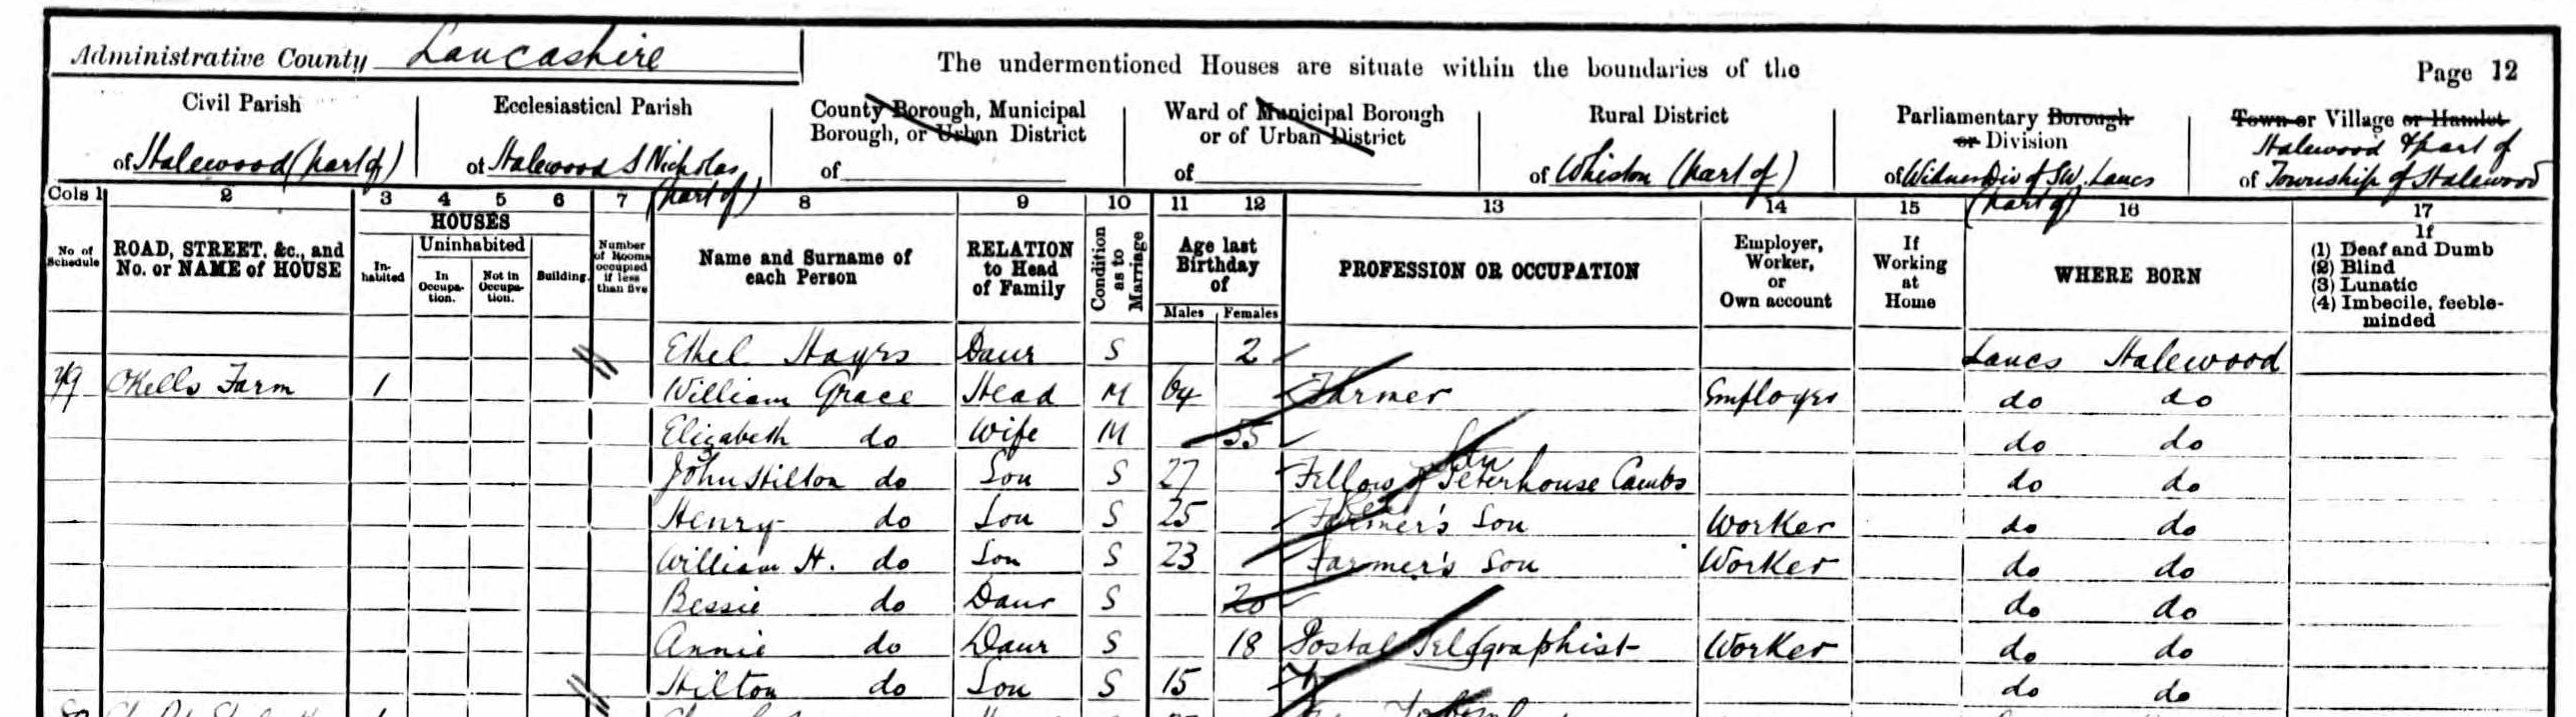 Administrative County Lancashire
The undermentioned Houses are situate within the boundaries of the
Page 12
Civil Parish
of Halewood (part of)
Ecclesiastical Parish
of Halewood S Nicholas
(part of)
County Borough, Municipal
Borough, or Urban District
of
Ward of Municipal Borough
or of Urban District
of
Rural District
of Whiston (part of)
Parliamentary Borough
or Division
of Widnes Div of S.W. Lancs
(part of)
Town or Village or Hamlet
Halewood & part of
of Township of Halewood
Cols 1 2 3 4 5 6 7 8 9 10 11 12 13 14 15 16 17
No. of
Schedule
ROAD, STREET, &c., and
No. or NAME of HOUSE
HOUSES
In-
habited
Uninhabited
In
Occupa-
tion.
Not in
Occupa-
tion.
Building.
Number
of Rooms
occupied
if less
than five
Name and Surname of
each Person
RELATION
to Head
of Family
Condition
as to
Marriage
Age last
Birthday
of
Males Females
PROFESSION OR OCCUPATION
Employer,
Worker,
or
Own account
If
Working
at
Home
WHERE BORN
If
(1) Deaf and Dumb
(2) Blind
(3) Lunatic
(4) Imbecile, feeble-
minded
Ethel Hayes Daur S 2 Lancs Halewood
79 OKells Farm 1 William Grace Head M 64 Farmer Employer do do
Elizabeth do Wife M 55 do do
John Hilton do Son S 27 Fellow of Peterhouse Cambs do do
Henry do Son S 25 Farmer's Son Worker do do
William H. do Son S 23 Farmer's Son Worker do do
Bessie do Daur S 20 do do
Annie do Daur S 18 Postal Telegraphist Worker do do
Hilton do Son S 15 do do